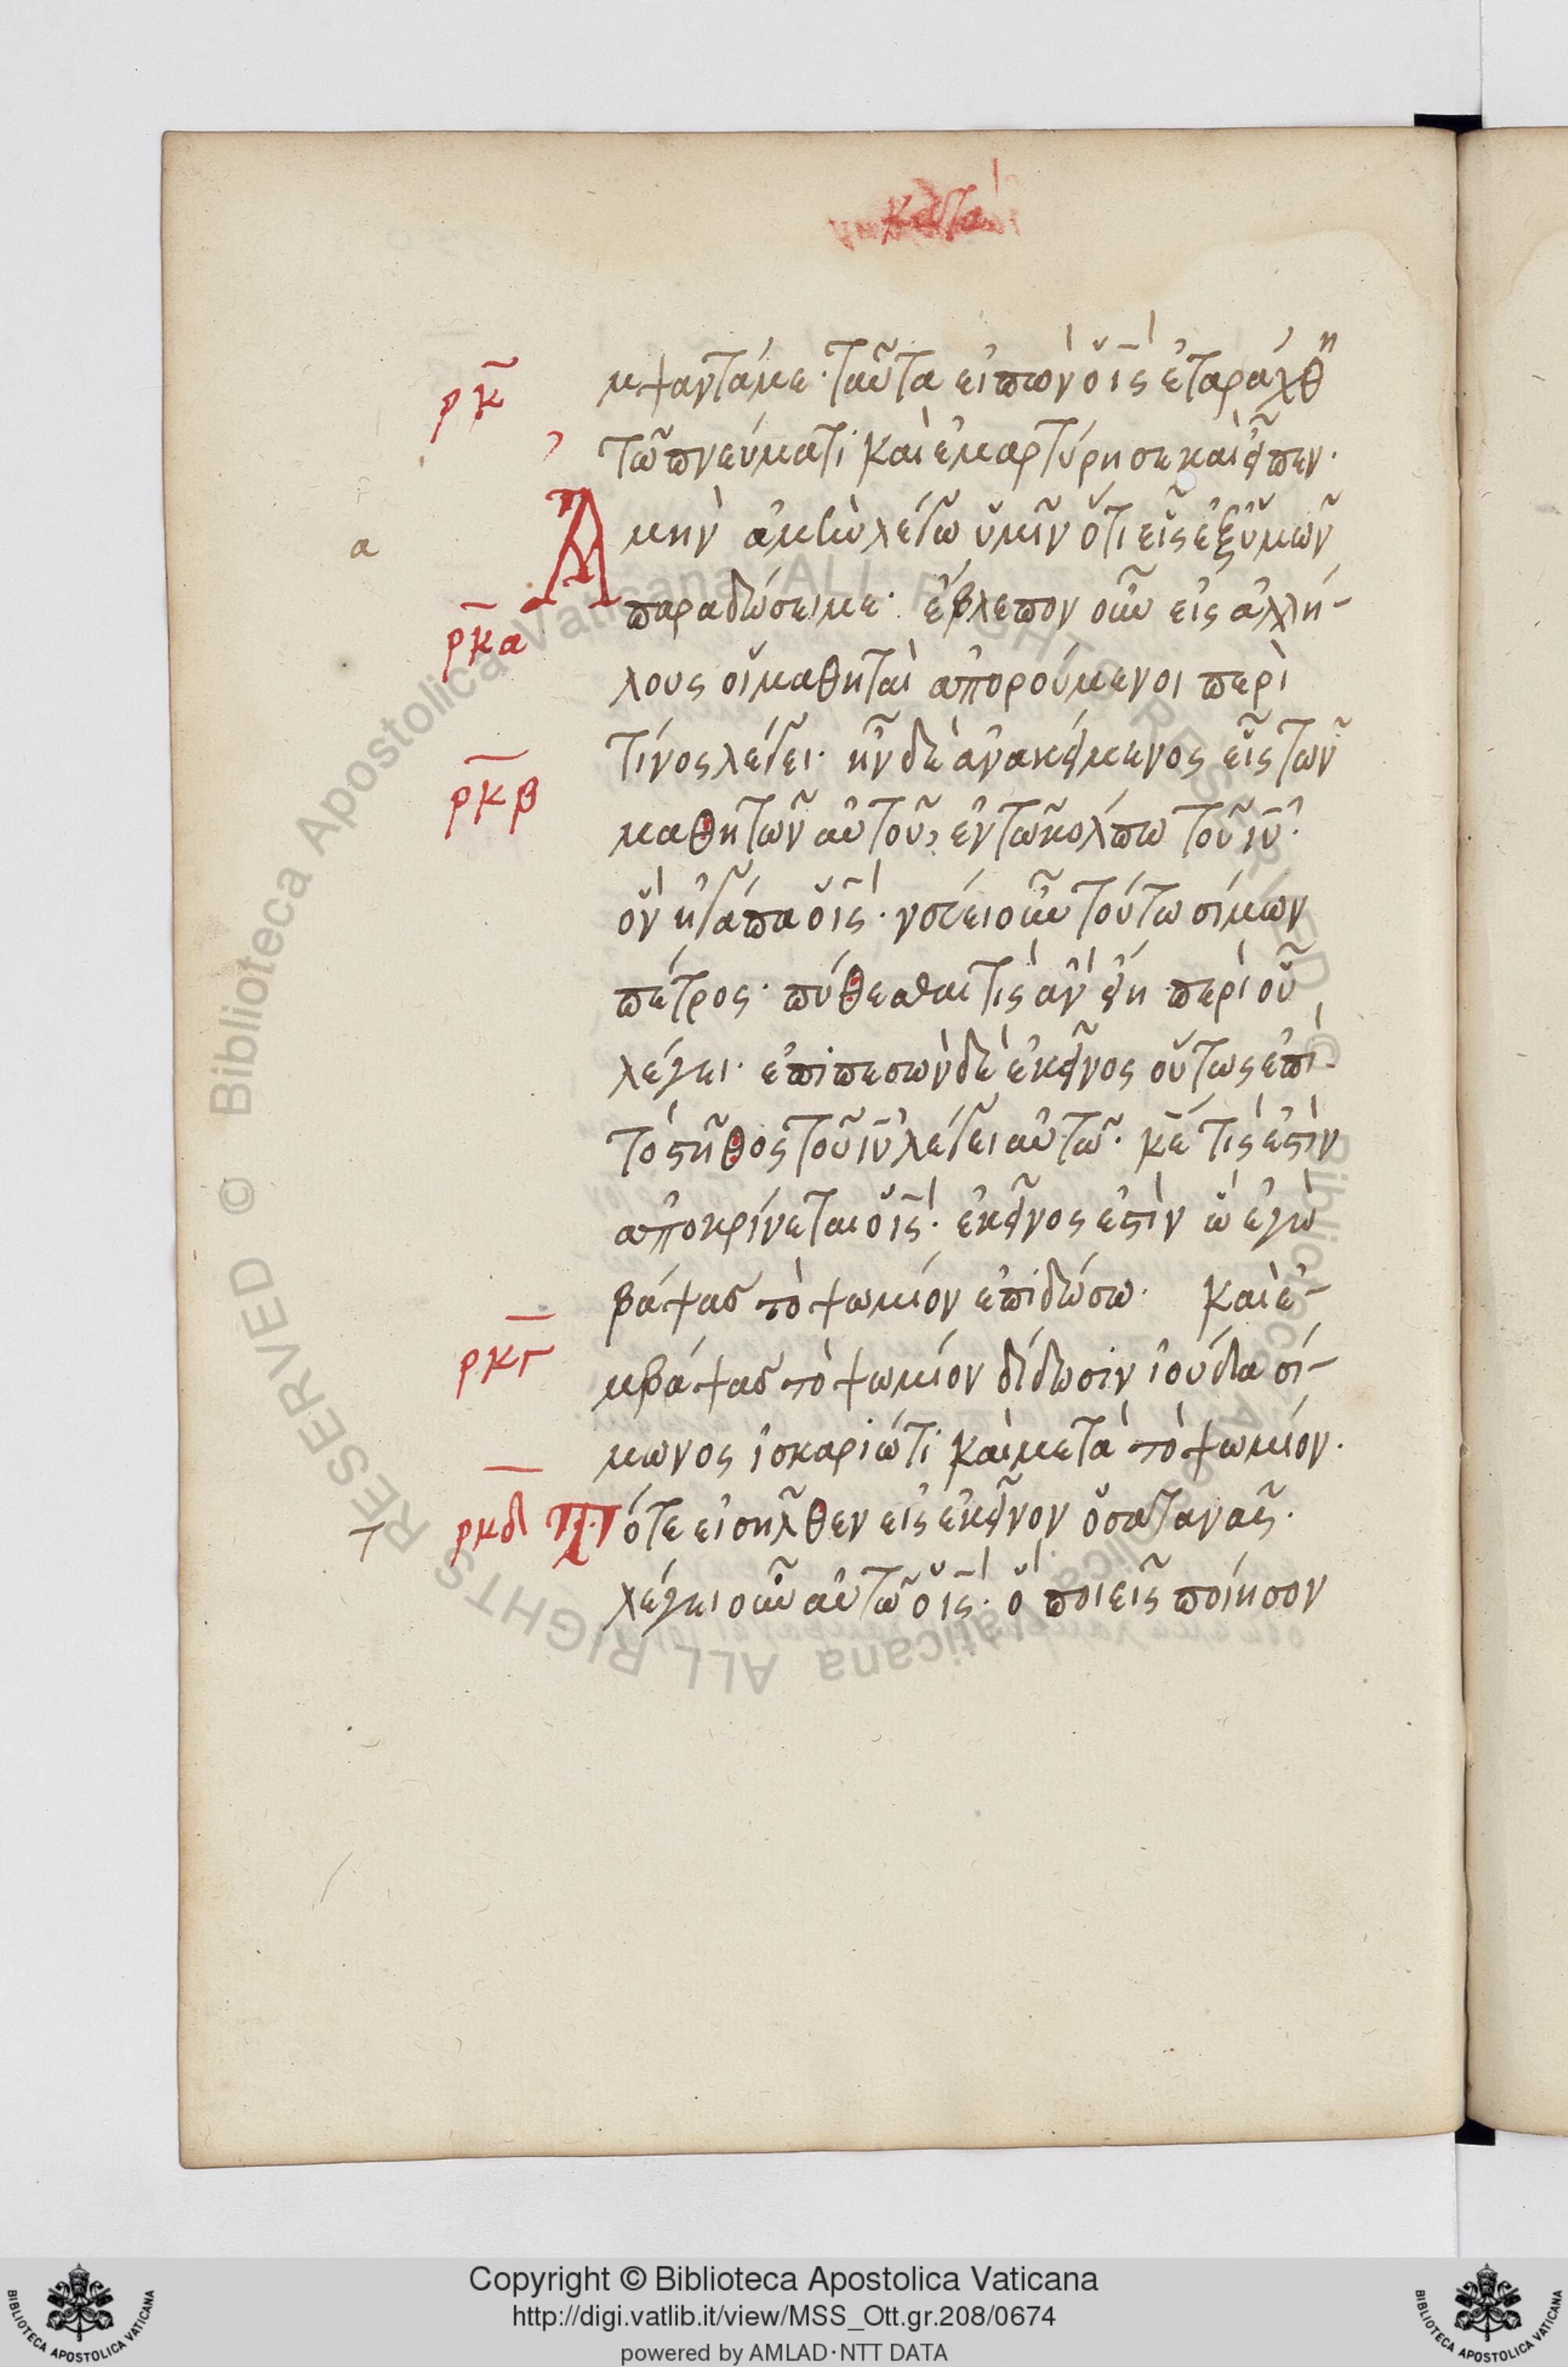 κατα
ρκ
μψαντά με· ταῦτα εἰπὼν ὁ ις ἐταράχθη
τῶ πνεύματι καὶ ἐμαρτύρησε καὶ εἶπεν·
Α μὴν ἀμὴν λέγω ὑμῖν ὅτι εἷς ἐξ ὑμῶν
α
παραδώσει με· ἔβλεπον οὖν εἰς ἀλλή-
ρκα
λους οἱ μαθηταὶ ἀπορούμενοι περὶ
τίνος λέγει· ἦν δὲ ἀνακείμενος εἷς τῶν
ρκβ
μαθητῶν αὐτοῦ, ἐν τῶ κόλπω τοῦ ιυ·
ὃν ἠγάπα ὁ ις· νεύει οὖν τούτω σίμων
πέτρος· πύθεσθαι τίς ἂν εἴη περὶ οὗ
λέγει· ἐπιπεσὼν δὲ ἐκεῖνος οὕτως ἐπὶ
τὸ στῆθος τοῦ ιυ λέγει αὐτῶ· κε τίς ἐστὶν
ἀποκρίνεται ὁ ις· ἐκεῖνος ἐστὶν ὧ ἐγὼ
βάψας τὸ ψωμίον ἐπιδώσω· καὶ ἐ-
ρκγ
μβάψας τὸ ψωμίον δίδωσιν ἰούδα σί-
μωνος ἰσκαριώτι καὶ μετὰ τὸ ψωμίον·
ρκδ
Τ ότε εἰσῆλθεν εἰς ἐκεῖνον ὁ σατανᾶς·
τ
λέγει οὖν αὐτῶ ὁ ις· ὃ ποιεῖς ποίησον
Copyright © Biblioteca Apostolica Vaticana
http://digi.vatlib.it/view/MSS_Ott.gr.208/0674
powered by AMLAD·NTT DATA
BIBLIOTECA APOSTOLICA VATICANA
BIBLIOTECA APOSTOLICA VATICANA
© Biblioteca Apostolica Vaticana ALL RIGHTS RESERVED
© Biblioteca Apostolica Vaticana ALL RIGHTS RESERVED